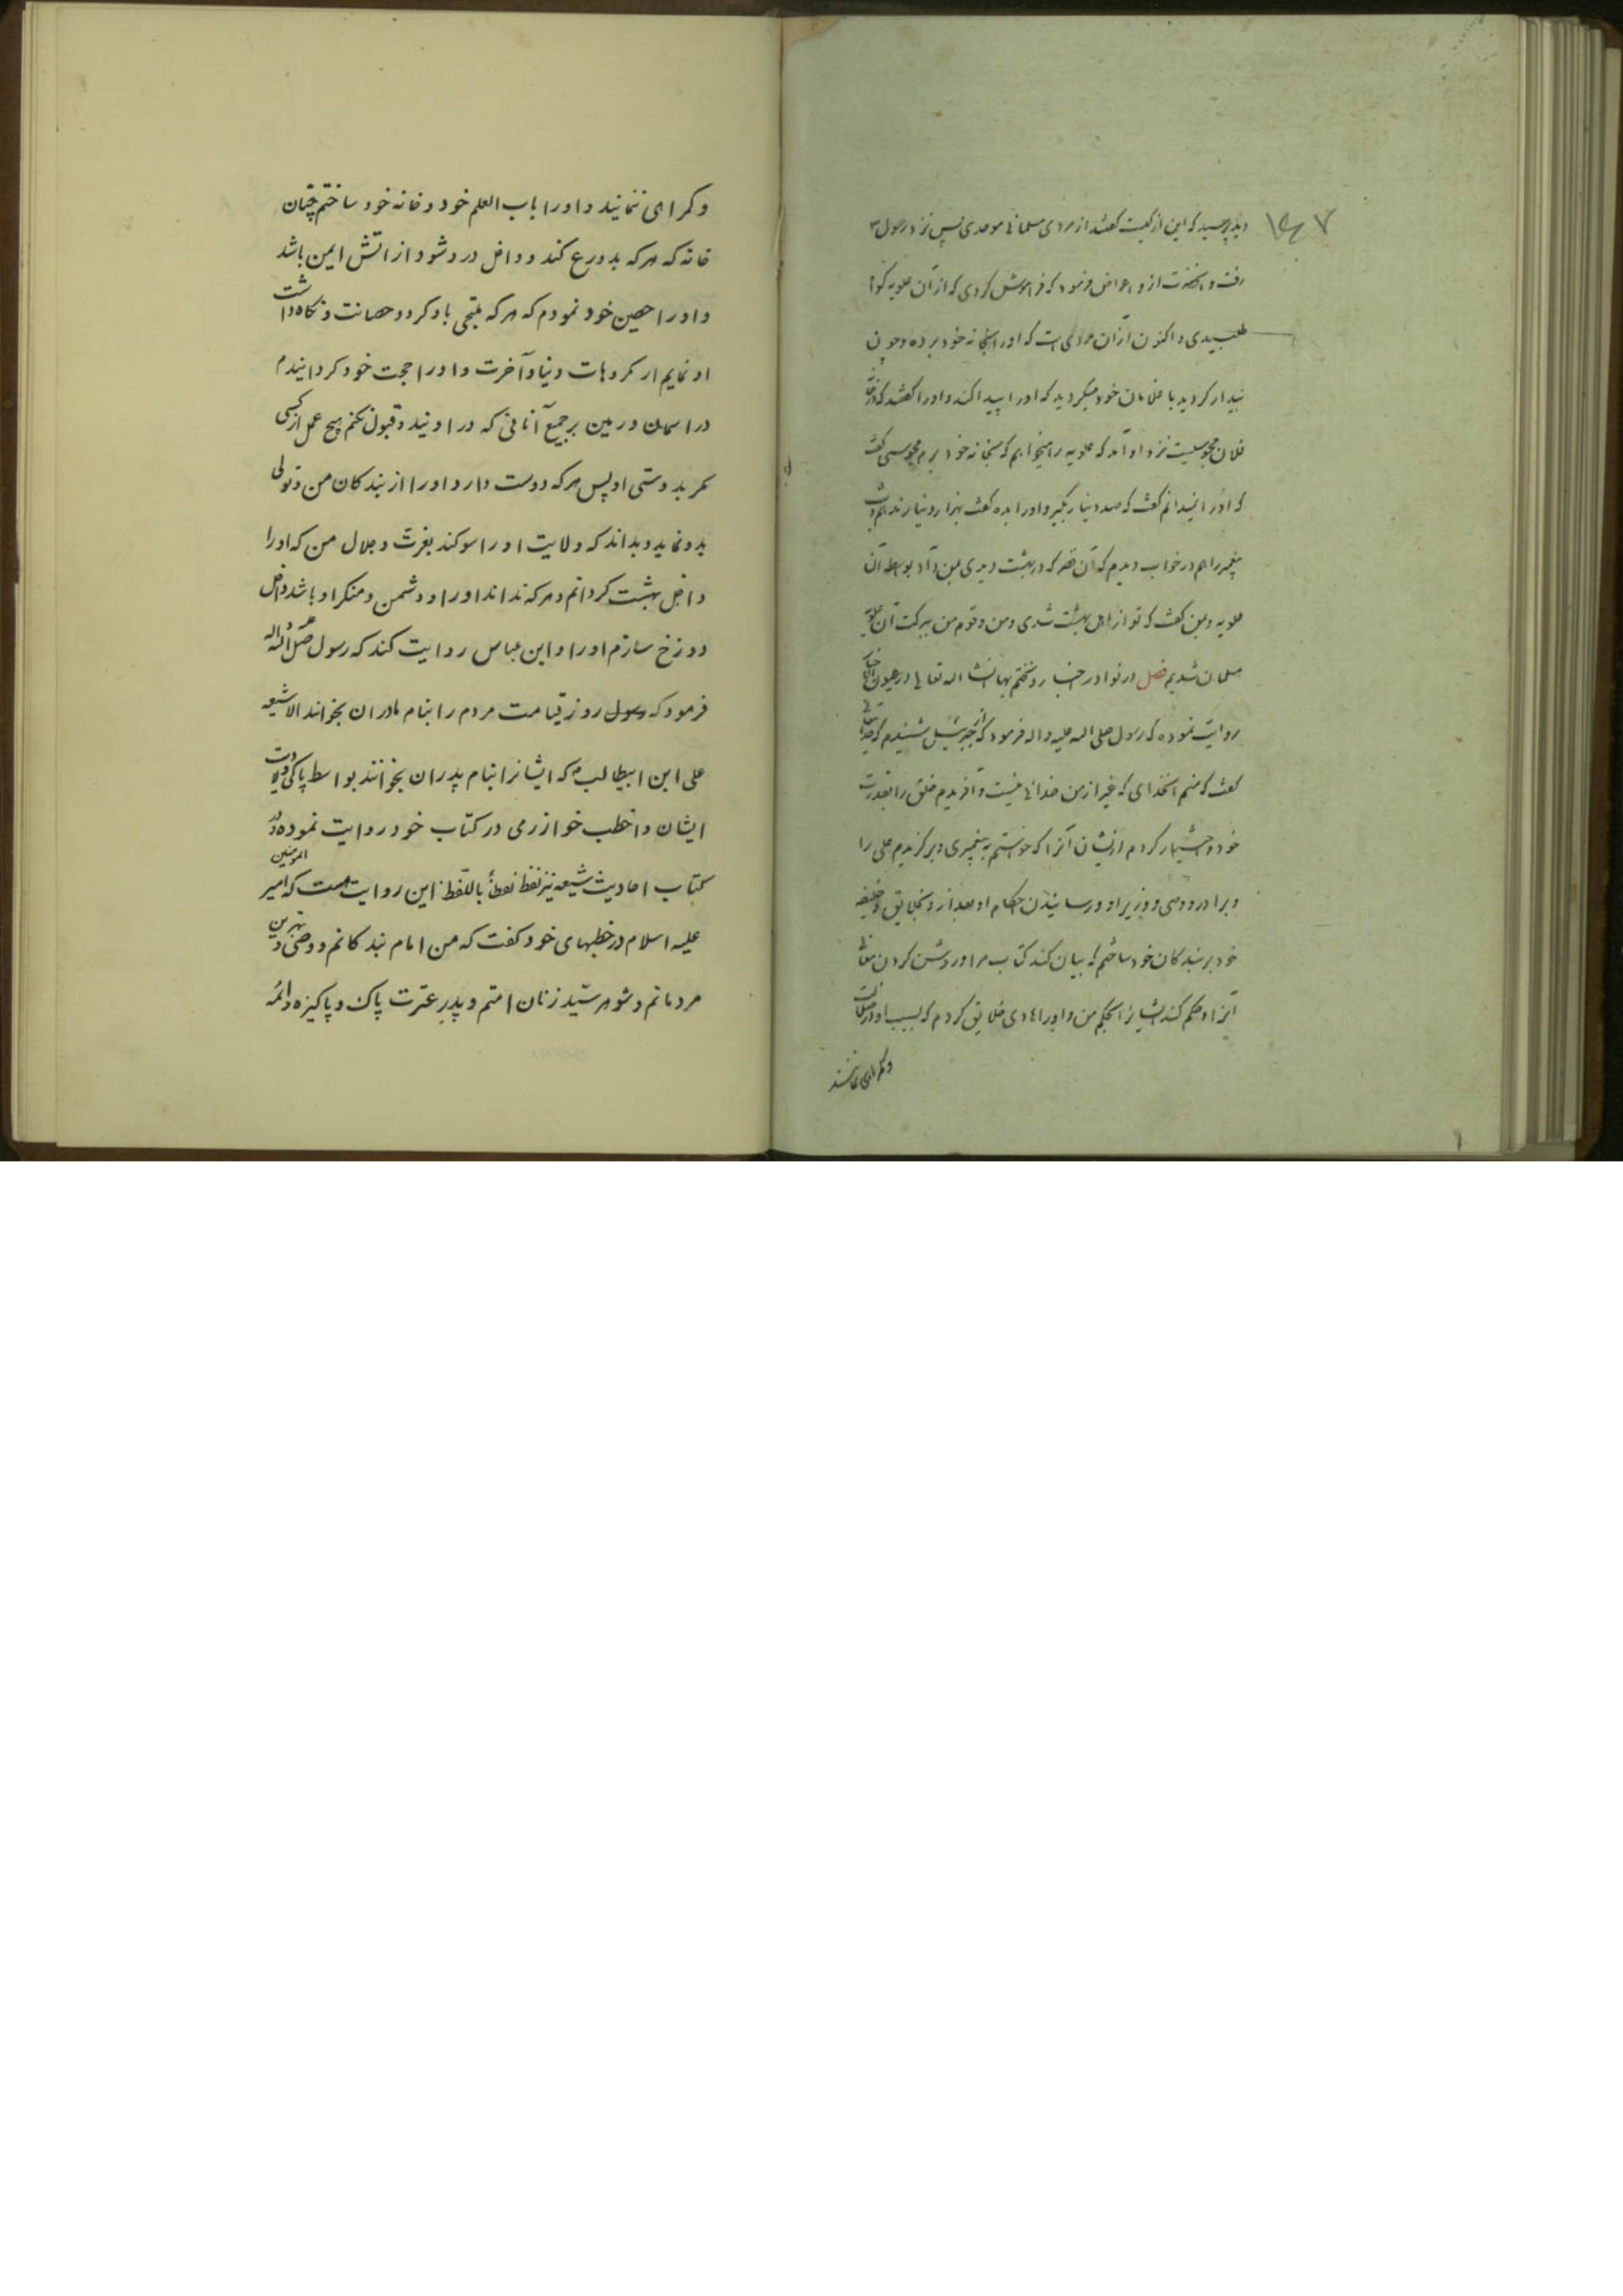 دید پرسید که این از کیست گفتند از مردی مسلمانی موحدی پس نزد رسول
رفت و آنحضرت ازو اعراض فرمود که فراموش کردی که از آن علویه گواه
طلبیدی و اکنون از آن مردی است که او را بخانه خود برده و چون
بیدار کردید با غلامان خود میکردید که او را پیدا کند و او را گفتند که در خانه
فلان مجوسیست نزد او آمد که علویه را میخواهم که بخانه خود برم مجوسی گفت
که او را نمیدانم گفت که صد دینار بگیر و او را بده گفت بهزار دینار ندهم دوش
پیغمبر را هم در خواب دیدم که آن قصر که در بهشت دیدی بمن داد بواسطه آن
علویه و بمن گفت که تو از اهل بهشت شدی و من و قوم من ببرکت آن علویه
مسلمان شدیم فصل در نوادر اخبار و نختم بها انشاء اله تعالی در عیون اخبار
روایت نموده که رسول صلی اله علیه و اله فرمود که از جبرئیل شنیدم که خدایتعالی
گفت که منم آنخدای که غیر از من خدائی نیست و آفریدم خلق را بقدرت
خود و اختیار کردم از ایشان آنرا که خواستم به پیغمبری و برگزیدم علی را
و برادر و وصی و وزیر او و رسانیدن احکام او بعد ازو بخلایق و خلیفه
خود بر بندگان خود ساختم که بیان کند کتاب مرا و روشن کردن معانی
آنرا و حکم کند ایشانرا بحکم من و او را هادی خلایق کردم که بسبب او از ضلالت
و گمراهی نمانند
و کمراهی ننمایند و او را باب العلم خود و خانه خود ساختم چنان
خانه که هر که بدو رع کند و داخل درو شود از اتش ایمن باشد
و او را حصین خود نمودم که هر که ملتجی باو کردد حصانت و نگاه داشت
او نمایم از مکروهات دنیا و آخرت و او را حجت خود کردانیدم
در اسمان و زمین بر جمیع آنانی که در اویند و قبول نکنم هیچ عمل از کسی
مگر بدوستی او پس هر که دوست دارد او را از بندکان من و تولی
بدو نماید و بداند که ولایت او را سوکند بعزت و جلال من که او را
داخل بهشت کردانم و هر که نداند او را و دشمن و منکر او باشد داخل
دوزخ سازم او را و ابن عباس روایت کند که رسول صلی اله علیه و اله
فرمود که رسول روز قیامت مردم را بنام مادران بخوانند الا شیعه
علی ابن ابیطالب که ایشانرا بنام پدران بخوانند بواسط پاکی ولادت
ایشان و اخطب خوارزمی در کتاب خود روایت نموده و در
کتاب احادیث شیعه نیز لفظا لفظا باللفظ این روایت هست که امیر المومنین
علیه اسلام در خطبهای خود کفت که من امام بندکانم و وصی بهترین
مردمانم و شوهر سیّد زنان امتم و پدر عترت پاک و پاکیزه و ائمه